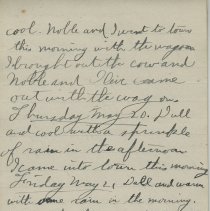 cool. Noble and I went to town
this morning with the wagon
I brought out the cow and
Noble and Olive came
out with the wagon.
Thursday May 20. Dull
and cool with a sprinkle
of rain in the afternoon
I came into town this morning
Friday May 21 Dull and warm
with some rain in the morning.